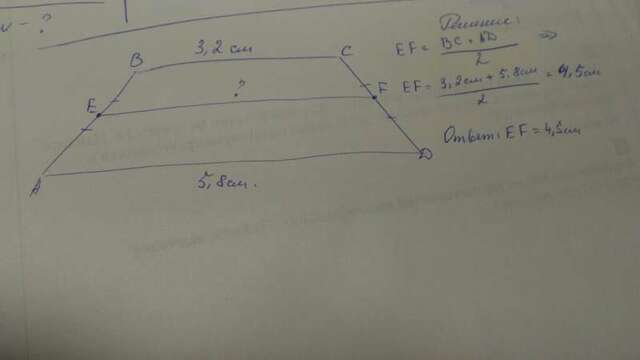 v - ?
Решение:
B 3,2 см C
EF = BC + AD / 2 =>
E ? F
EF = 3,2 см + 5,8 см / 2 = 4,5 см
Ответ: EF = 4,5 см
A 5,8 см. D